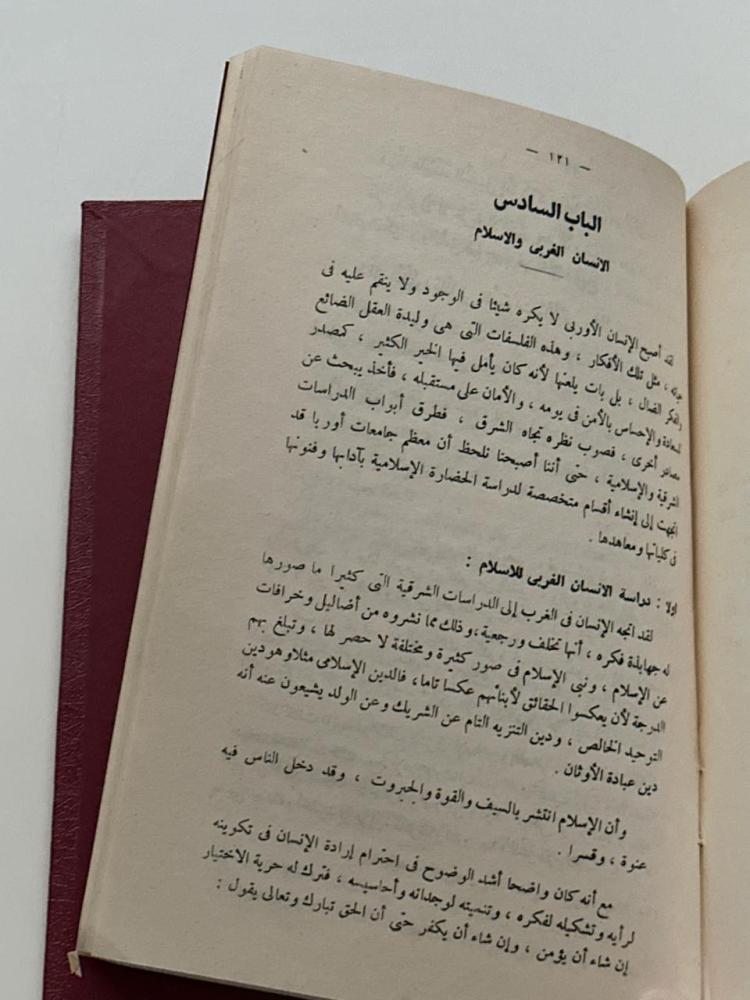 — ١٢١ —
الباب السادس
الانسان الغربى والاسلام
لقد أصبح الإنسان الأوربى لا يكره شيئا فى الوجود ولا ينقم عليه فى
حياته ، مثل تلك الأفكار ، وهذه الفلسفات التى هى وليدة العقل الضائع
والفكر الضال ، بل بات يلعنها لأنه كان يأمل فيها الخير الكثير ، كمصدر
للسعادة والإحساس بالأمن فى يومه ، والأمان على مستقبله ، فأخذ يبحث عن
مصادر أخرى ، فصوب نظره تجاه الشرق ، فطرق أبواب الدراسات
الشرقية والإسلامية ، حتى أننا أصبحنا نلحظ أن معظم جامعات أوربا قد
اتجهت إلى إنشاء أقسام متخصصة لدراسة الحضارة الإسلامية بآدابها وفنونها
فى كلياتها ومعاهدها .
اولا : دراسة الانسان الغربى للاسلام :
لقد اتجه الإنسان فى الغرب إلى الدراسات الشرقية التى كثيرا ما صورها
له جهابذة فكره ، أنها تخلف ورجعية ، وذلك مما نشروه من أضاليل وخرافات
عن الإسلام ، ونبى الإسلام فى صور كثيرة ومختلفة لا حصر لها ، وتبلغ بهم
الدرجة لأن يعكسوا الحقائق لأبنائهم عكسا تاما ، فالدين الإسلامى مثلا وهو دين
التوحيد الخالص ، ودين التنزيه التام عن الشريك وعن الولد يشيعون عنه أنه
دين عبادة الأوثان .
وأن الإسلام انتشر بالسيف والقوة والجبروت ، وقد دخل الناس فيه
عنوة ، وقسرا .
مع أنه كان واضحا أشد الوضوح فى احترام إرادة الإنسان فى تكوينه
لرأيه وتشكيله لفكره ، وتنميته لوجدانه وأحاسيسه ، فترك له حرية الاختيار
إن شاء أن يؤمن ، وإن شاء أن يكفر حتى أن الحق تبارك وتعالى يقول :